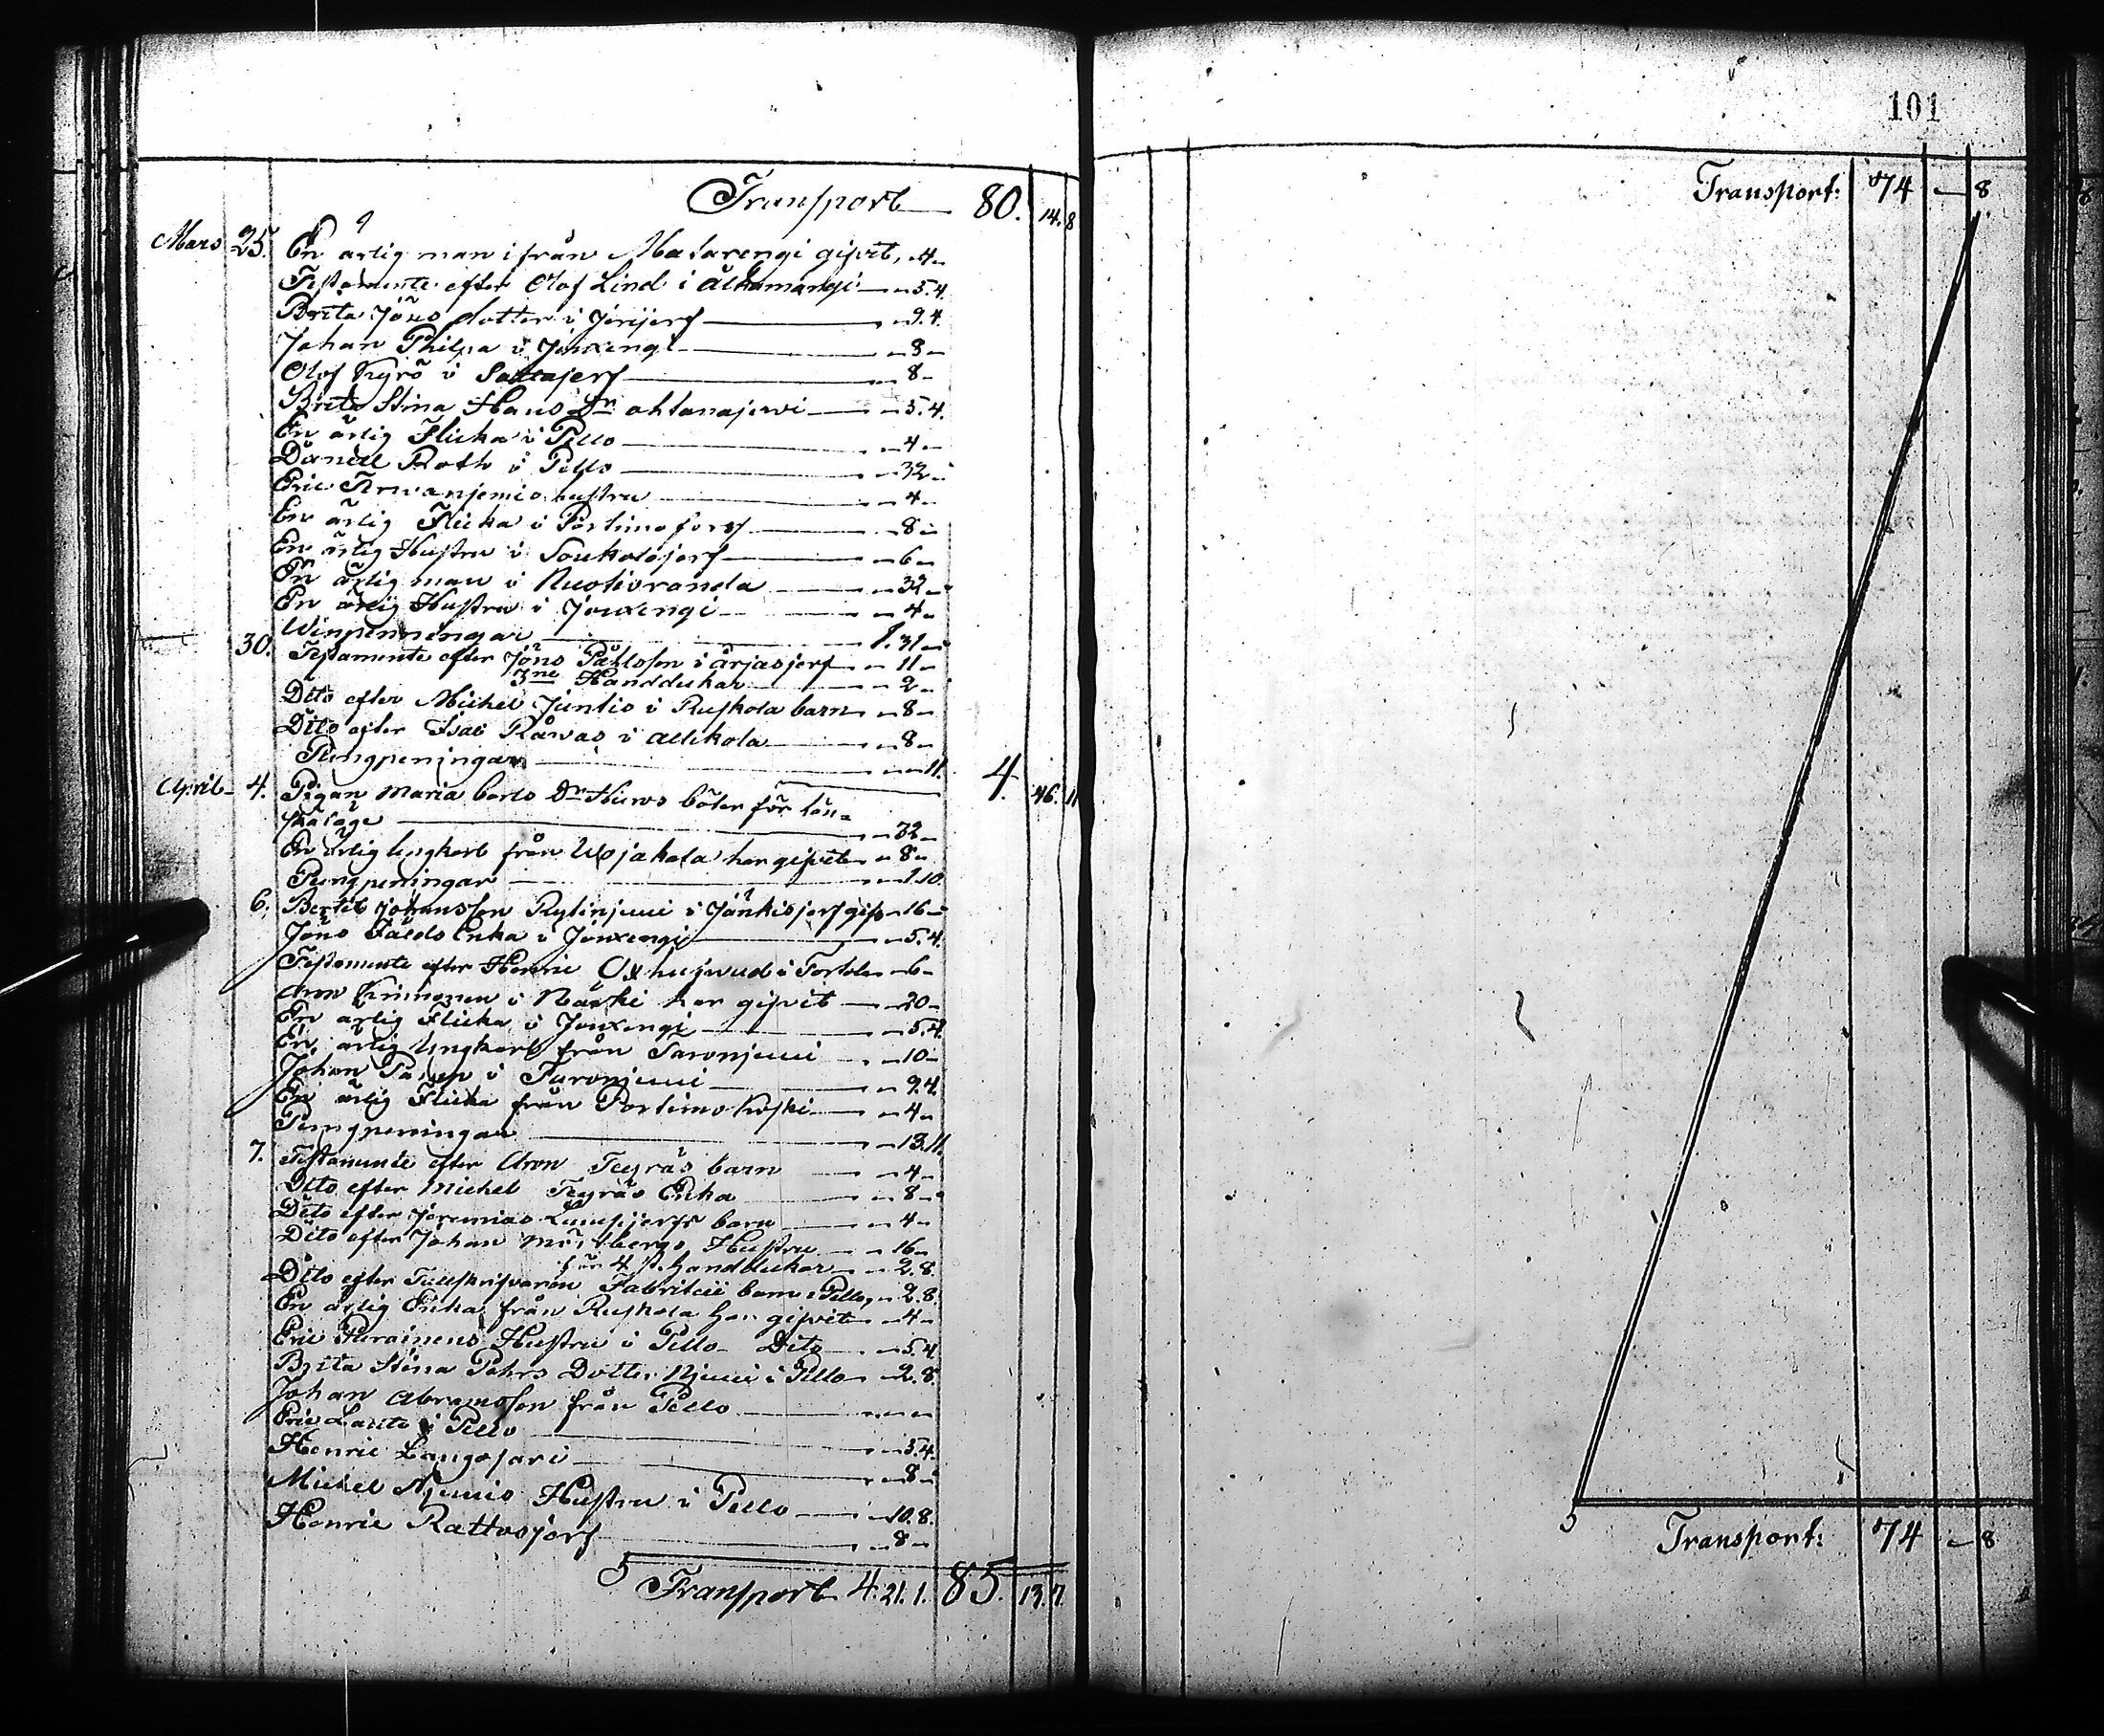 Transport 80. 14. 8
Mars 25. En ärlig man ifrån Matarengi gifvit, -4-
Testamente efter Olof Lind i Alkamangi -5.4.
Brita Jöns dotter i Jerijerf -9.4.
Johan Philpa i Jouxengi -8-
Olof Kyrö i Sattajerf -8-
Brita Stina Hans Dr ahtanajervi -5.4.
En ärlig Flicka i Pello -4-
Daniel Roth i Pello -32-
Eric hustru -4-
En ärlig Flicka i Portimofors -8-
En ärlig Hustru i Soukolojerf -6-
En ärlig man i Ruotioranda -32-
En ärlig Hustru i Jouxengi -4-
Winpenningar 1.31-
30. Testamente efter Jöns Pålsson i ärjasjerf -11-
3ne Handdukar -2-
Dito efter Michel Juntis i Ruskola barn -8-
Dito efter Isac Råwas i allkola -8-
Pungpeningar -11. 4. 46. 11
April 4. Pigan Maria Carls Dr böter för lön-
skaläge -32-
En ärlig Ungkarl från har gifvit -8-
Pungpeningar -1.10.
6. Bertil Johansson Rytinjemi i Jänkisjerf gif -16-
Jöns Fälds Enka i Jouxengi -5.4.
Testamente efter Henric Oxhufwud i Tortola -6-
Aron i Narki har gifvit -20-
En ärlig Flicka i Jouxengi -5.4.
En ärlig Ungkarl från Taronjemi -10-
Johan i Turonjemi -9.4.
En ärlig Flicka från Portimokoski -4-
Pungpeningar -13.11.
7. Testamente efter Aron Tegräs barn -4-
Dito efter Michel Tegräs Enka -8-
Dito efter Jeremias Lampijerfs barn -4-
Dito efter Johan Hustru -16-
för 4 st. handdukar -2.8.
Dito efter Tullskrifvaren Fabritcii barn i Pello, -2.8.
En ärlig Enka från Ruskola har gifvit -4-
Eric Purainens Hustru i Pello Dito -5.4
Brita Stina Pehrs Dotter Niemi i Pello -2.8.
Johan Abramsson från Pello
Eric Lauto i Pello -5.4
Henric Langosari -8-
Michel Niemis Hustru i Pello -10.8.
Henric Rattosjerf -8-
Transport 4.21.1. 85. 13. 7.
101
Transport: 74 - 8
Transport: 74 - 8